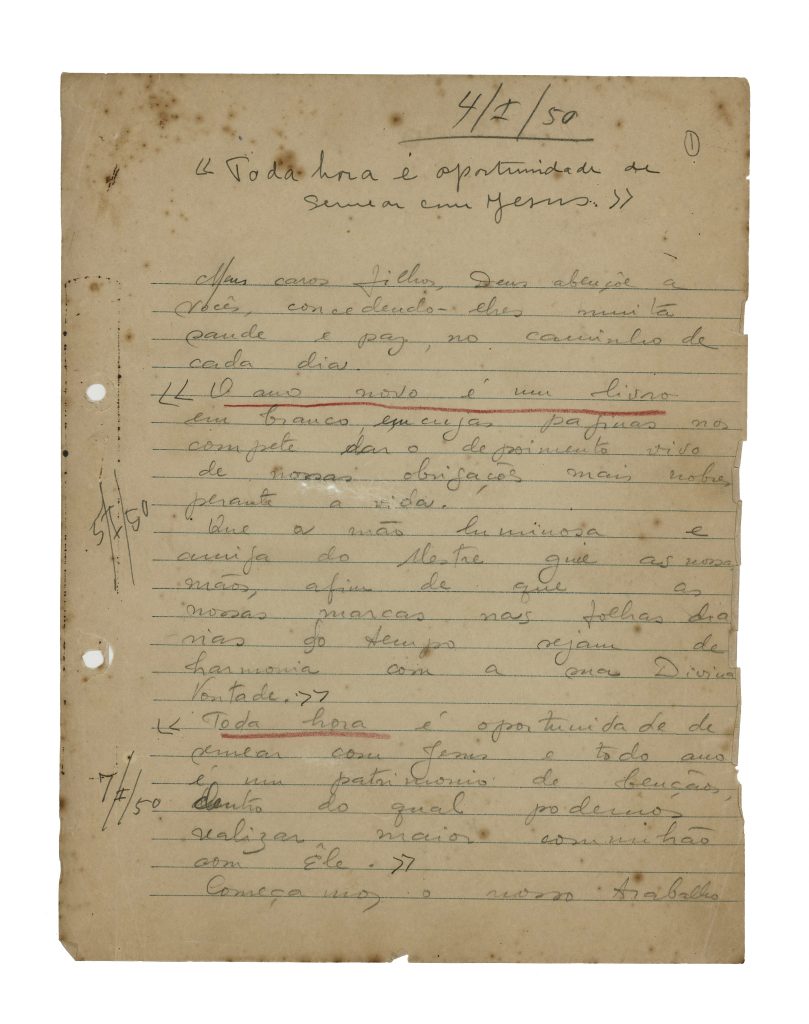 4/I/50
1
« Toda hora é oportunidade de
semear com Jesus. »
Meus caros filhos, Deus abençõe à
vocês, concedendo-lhes muita
saude e paz, no caminho de
cada dia.
« O ano novo é um livro
em branco, em cujas paginas nos
compete dar o depoimento vivo
de nossas obrigações mais nobres,
perante a vida.
Que a mão luminosa e
amiga do Mestre guie as nossas
mãos, afim de que as
nossas marcas nas folhas dia
rias do tempo sejam de
harmonia com a sua Divina
Vontade. »
« Toda hora é oportunidade de
semear com Jesus e todo ano
é um patrimonio de bençãos,
dentro do qual podemos
realizar maior comunhão
com Êle. »
Começamos o nosso trabalho
5/I/50
7/I/50